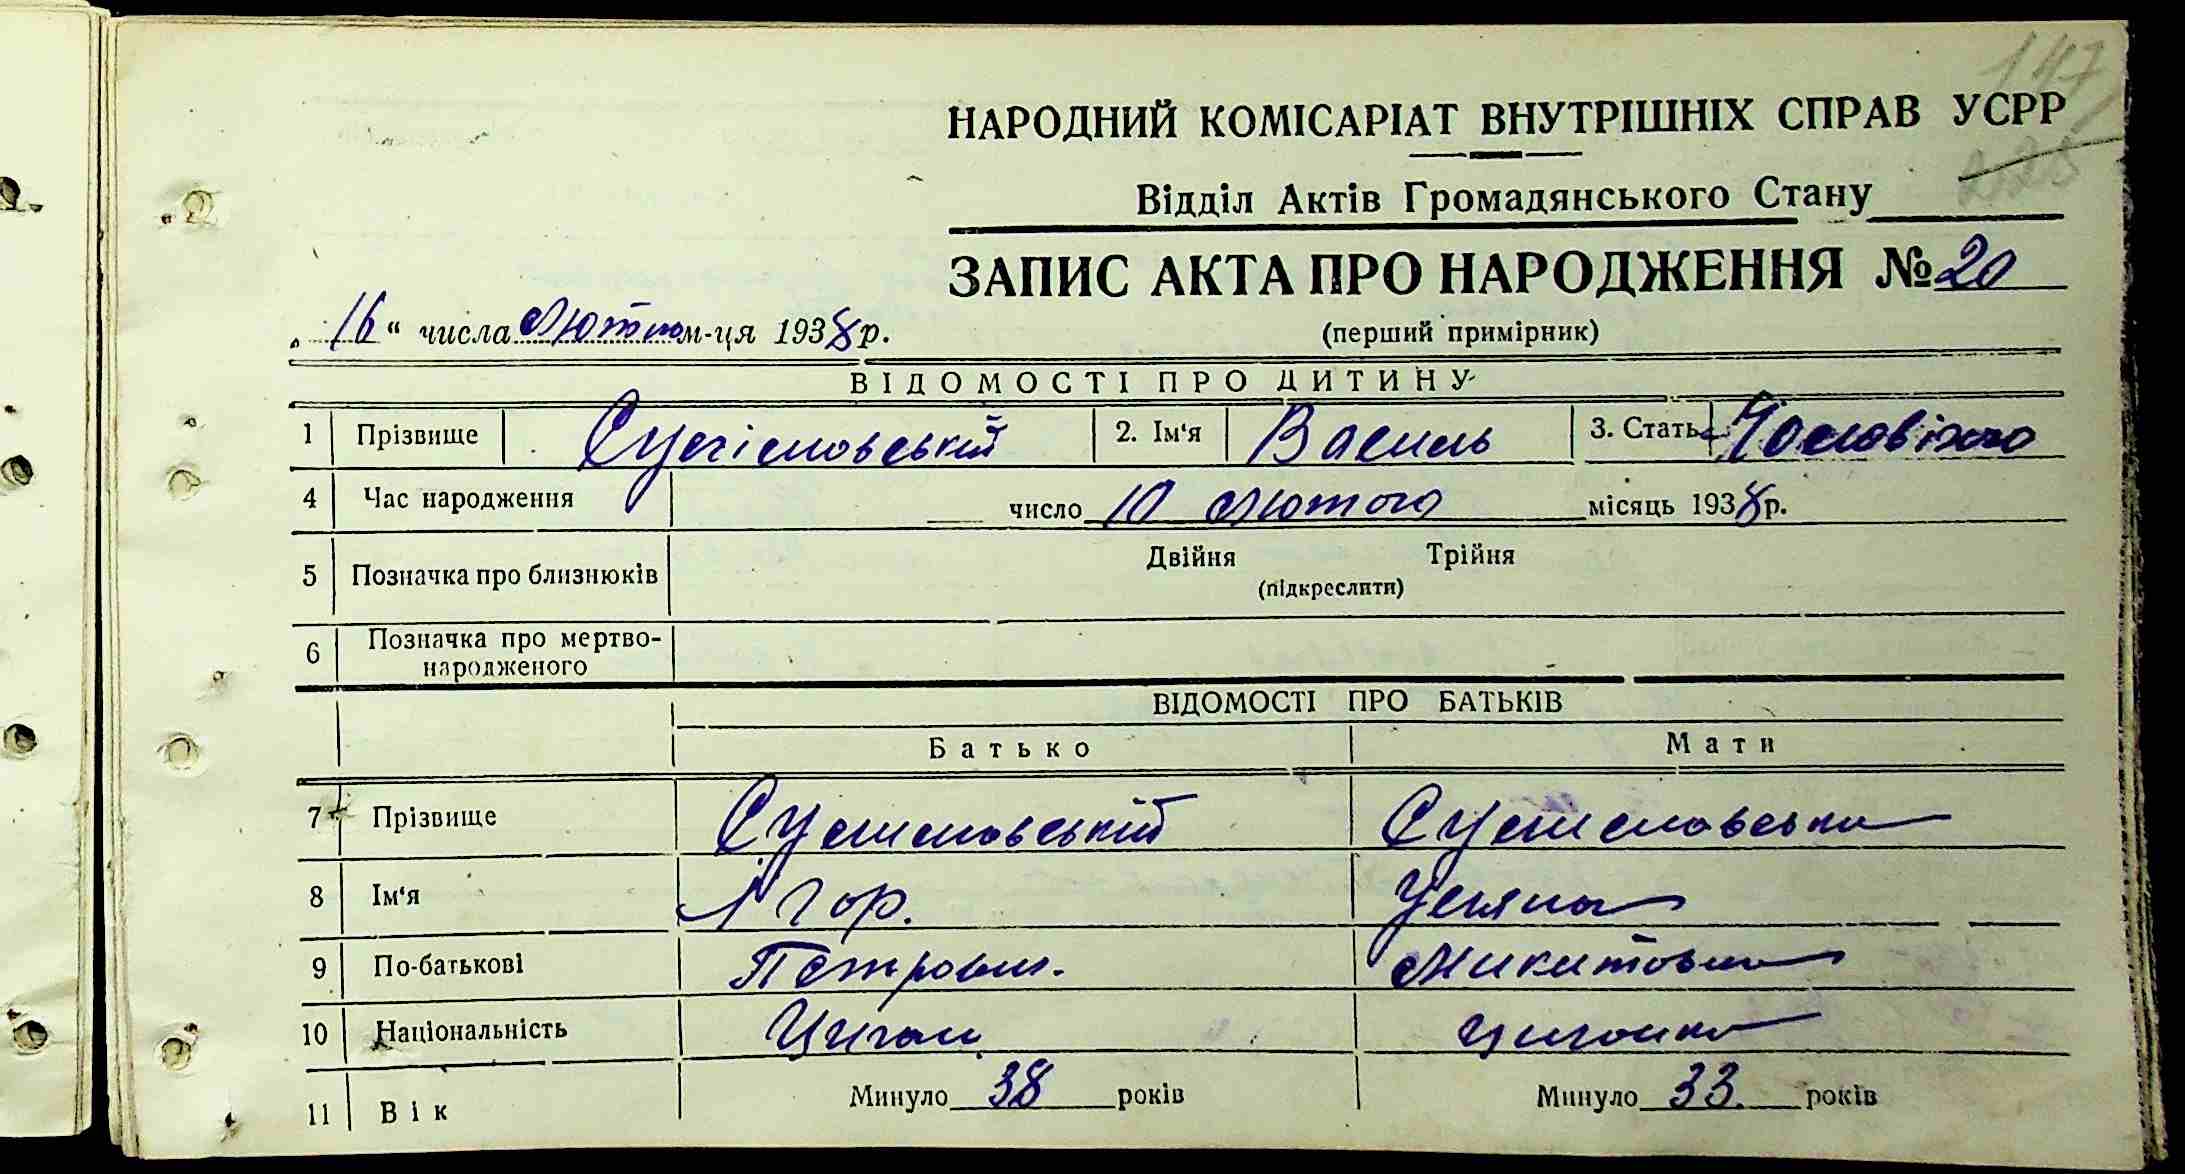 147
228
НАРОДНИЙ КОМІСАРІАТ ВНУТРІШНІХ СПРАВ УСРР
Відділ Актів Громадянського Стану
ЗАПИС АКТА ПРО НАРОДЖЕННЯ № 20
„ 16 “ числа Лютого м-ця 1938 р.
(перший примірник)
ВІДОМОСТІ ПРО ДИТИНУ
1 Прізвище 2. Ім'я Василь 3. Стать Чоловіча
4 Час народження число 10 Лютого місяць 1938 р.
5 Позначка про близнюків Двійня Трійня
(підкреслити)
6 Позначка про мертво-
народженого
ВІДОМОСТІ ПРО БАТЬКІВ
Батько Мати
7 Прізвище
8 Ім'я Ігор. Уляна
9 По-батькові Петрович. Микитовна
10 Національність Циган Циганка
11 Вік Минуло 38 років Минуло 33 років